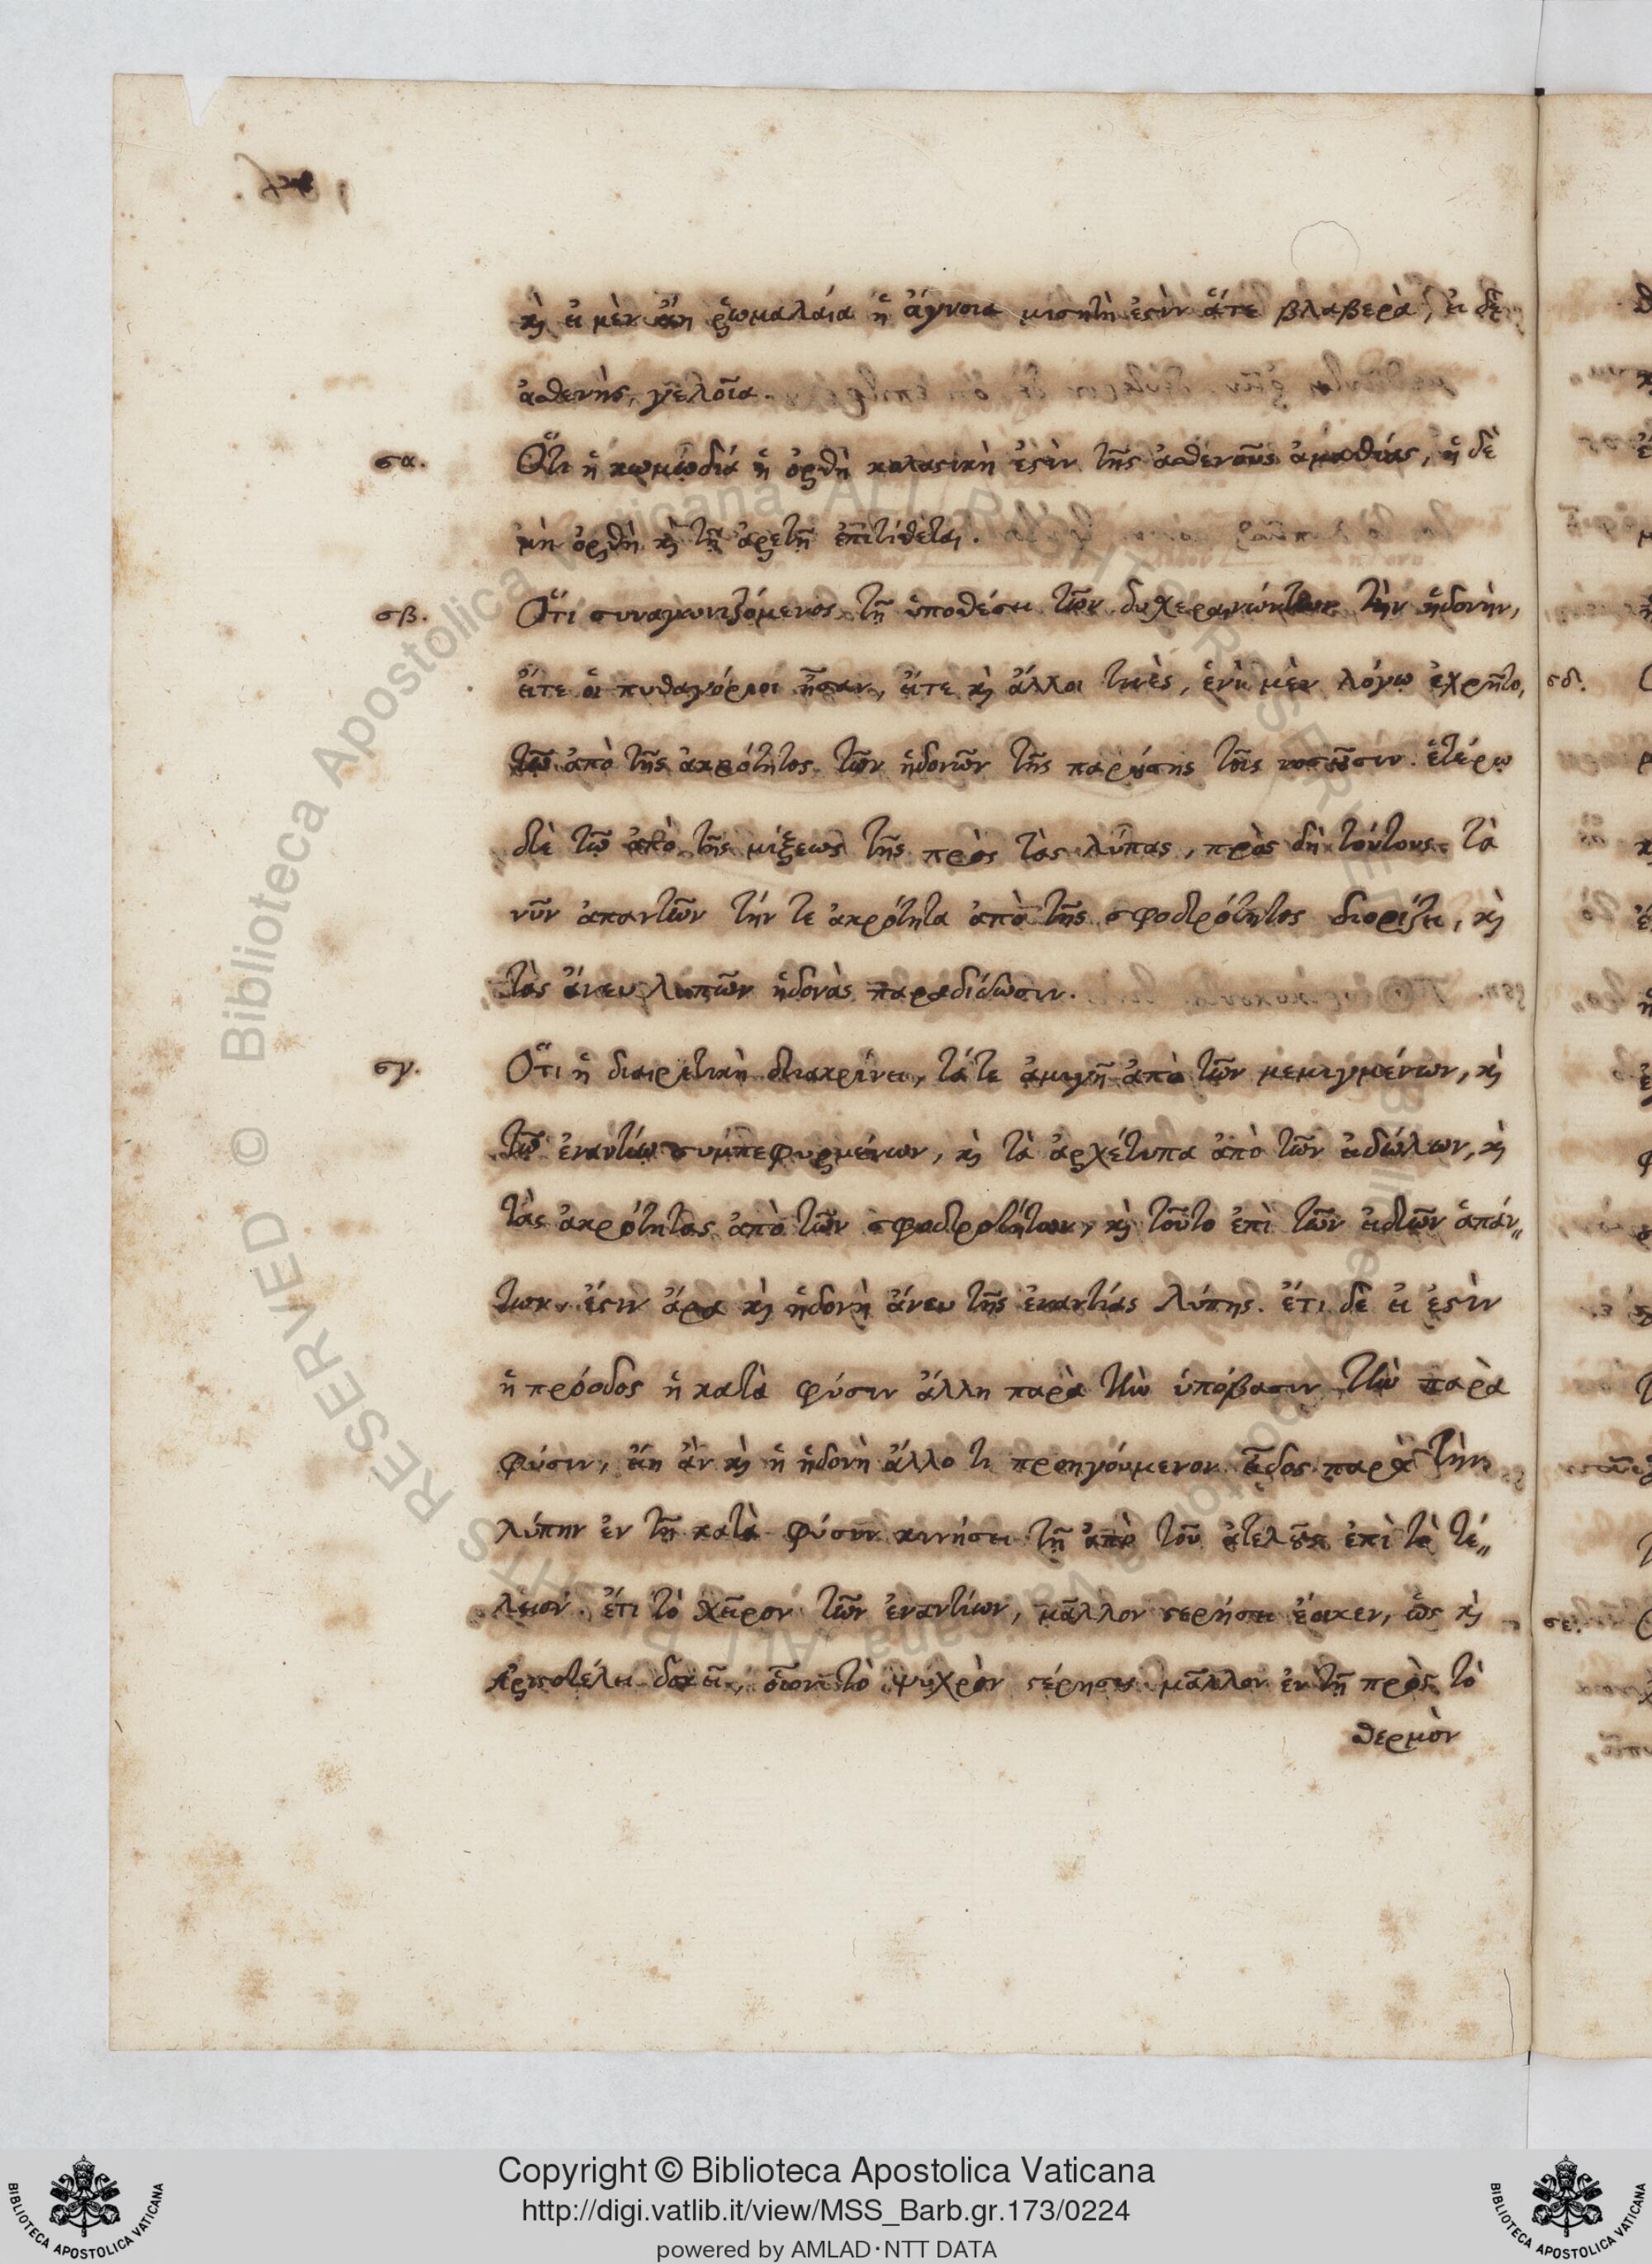 καὶ εἰ μὲν εἴη ῥωμαλαία ἡ ἄγνοια μισητὴ ἐστὶν ἅτε βλαβερὰ, εἰ δὲ
ἀσθενὴς, γελοῖα.
σα. Ὅτι ἡ κωμωδία ἡ ὀρθὴ κολαστικὴ ἐστὶν τῆς ἀσθενοῦς ἀμαθίας, ἡ δὲ
μὴ ὀρθὴ καὶ τῆ ἀρετῆ ἐπιτίθεται.
σβ. Ὅτι συναγωνιζόμενος τῆ ὑποθέσει τῶν δυχεραινόντων τὴν ἡδονὴν,
εἴτε οἱ πυθαγόρειοι ἦσαν, εἴτε καὶ ἄλλοι τινὲς, ἑνὶ μὲν λόγω ἐχρῆτο,
τῶ ἀπὸ τῆς ἀκρότητος τῶν ἡδονῶν τῆς παρούσης τοῖς νοσοῦσιν. ἑτέρω
δὲ τῶ ἀπὸ τῆς μίξεως τῆς πρὸς τὰς λύπας, πρὸς δὴ τούτους τὰ
νῦν ἀπαντῶν τήν τε ἀκρότητα ἀπὸ τῆς σφοδρότητος διορίζει, καὶ
τὰς ἄνευ λυπῶν ἡδονὰς παραδίδωσιν.
σγ. Ὅτι ἡ διαιρετικὴ διακρίνει, τά τε ἀμιγῆ ἀπὸ τῶν μεμιγμένων, καὶ
τῶ ἐναντίω συμπεφυρμένων, καὶ τὰ ἀρχέτυπα ἀπὸ τῶν εἰδώλων, καὶ
τὰς ἀκρότητας ἀπὸ τῶν σφοδροτήτων, καὶ τοῦτο ἐπὶ τῶν εἰδῶν ἁπάν〃
των. ἔστιν ἄρα καὶ ἡδονὴ ἄνευ τῆς ἐναντίας λύπης. ἔτι δὲ εἰ ἐστὶν
ἡ πρόοδος ἡ κατὰ φύσιν ἄλλη παρὰ τὴν ὑπόβασιν τὴν παρὰ
φύσιν, εἴη ἂν καὶ ἡ ἡδονὴ ἄλλο τι προηγούμενον εἶδος παρὰ τὴν
λύπην ἐν τῆ κατὰ φύσιν κινήσει τῆ ἀπὸ τοῦ ἀτελοῦς ἐπὶ τὸ τέ〃
λειον. ἔτι τὸ χεῖρον τῶν ἐναντίων, μᾶλλον στερήσει ἔοικεν, ὡς καὶ
Ἀριστοτέλει δοκεῖ, οἷον τὸ ψυχρὸν στέρησις μᾶλλον ἐν τῆ πρὸς τὸ
θερμὸν
σδ.
σε.
Copyright © Biblioteca Apostolica Vaticana
http://digi.vatlib.it/view/MSS_Barb.gr.173/0224
powered by AMLAD·NTT DATA
BIBLIOTECA APOSTOLICA VATICANA
BIBLIOTECA APOSTOLICA VATICANA